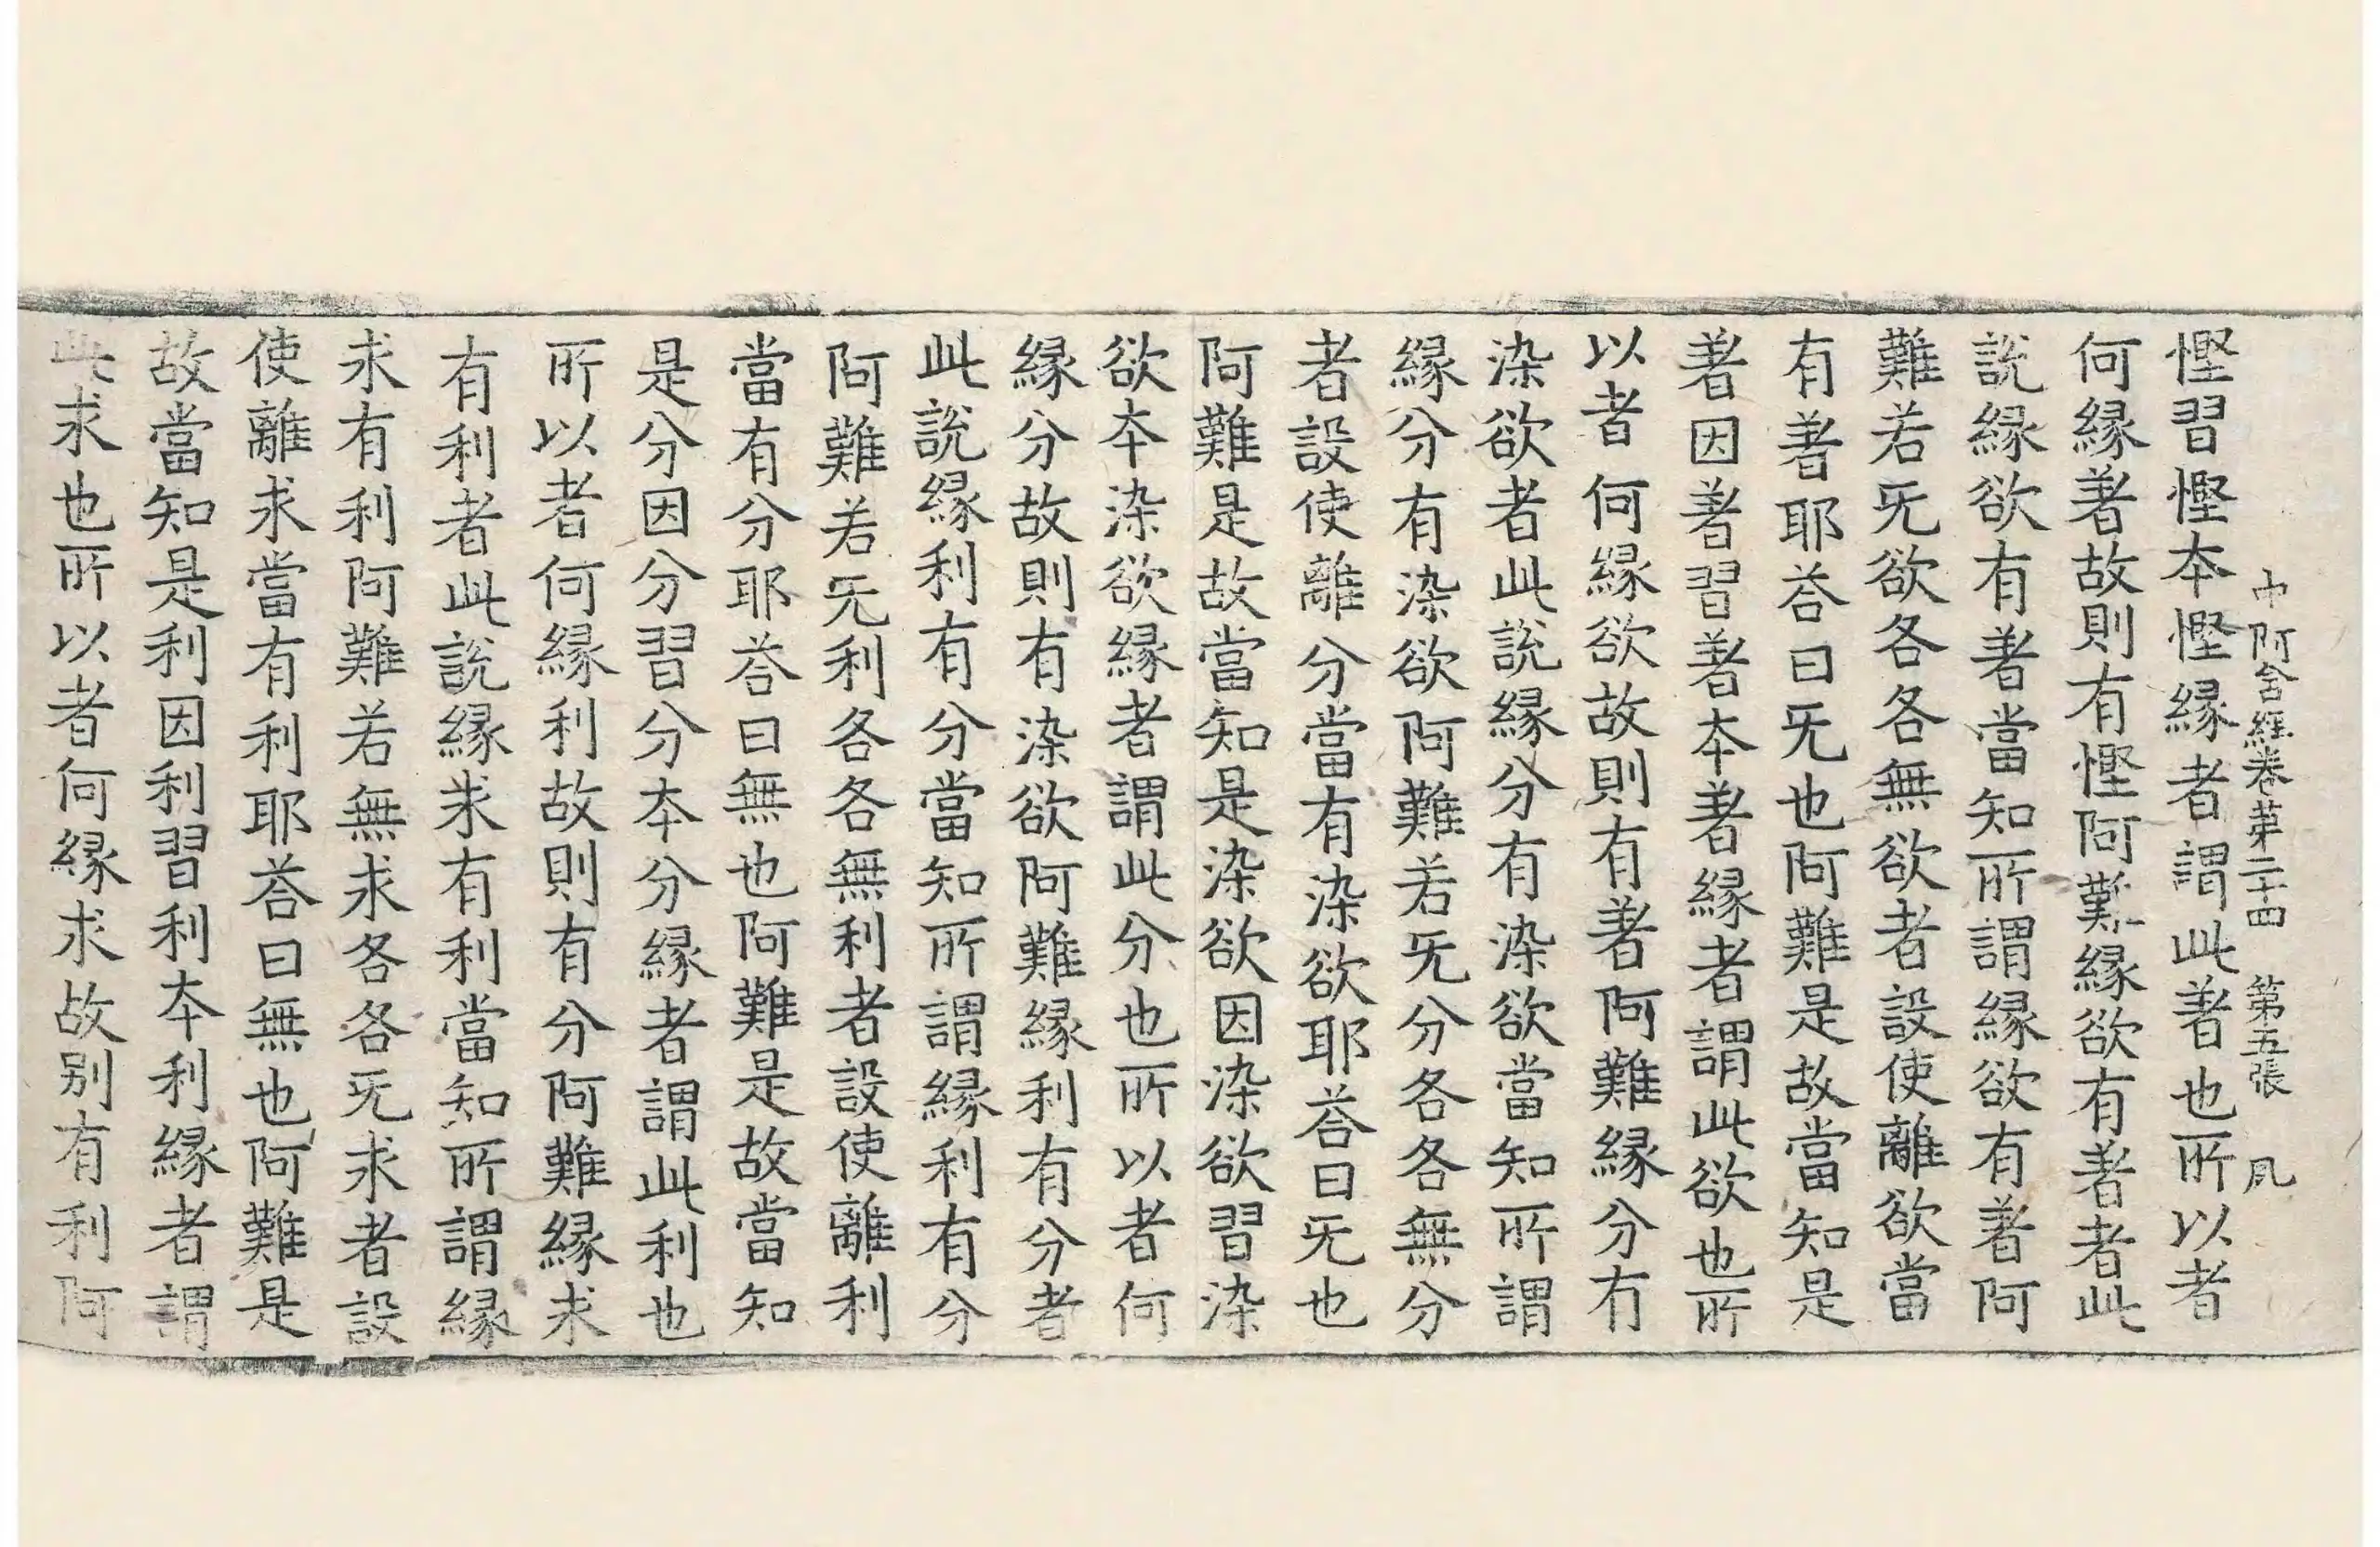 中阿含經卷苐二十四　第五張　夙
慳習慳本慳縁者謂此著也所以者
何縁著故則有慳阿難縁欲有著者此
說縁欲有著當知所謂縁欲有著阿
難若旡欲各各無欲者設使離欲當
有著耶荅曰旡也阿難是故當知是
著因著習著本著縁者謂此欲也所
以者何縁欲故則有著阿難縁分有
染欲者此說縁分有染欲當知所謂
縁分有染欲阿難若旡分各各無分
者設使離分當有染欲耶荅曰旡也
阿難是故當知是染欲因染欲習染
欲本染欲縁者謂此分也所以者何
縁分故則有染欲阿難縁利有分者
此說縁利有分當知所謂縁利有分
阿難若旡利各各無利者設使離利
當有分耶荅曰無也阿難是故當知
是分因分習分本分縁者謂此利也
所以者何縁利故則有分阿難縁求
有利者此說縁求有利當知所謂縁
求有利阿難若無求各各旡求者設
使離求當有利耶荅曰無也阿難是
故當知是利因利習利本利縁者謂
此求也所以者何縁求故別有利阿